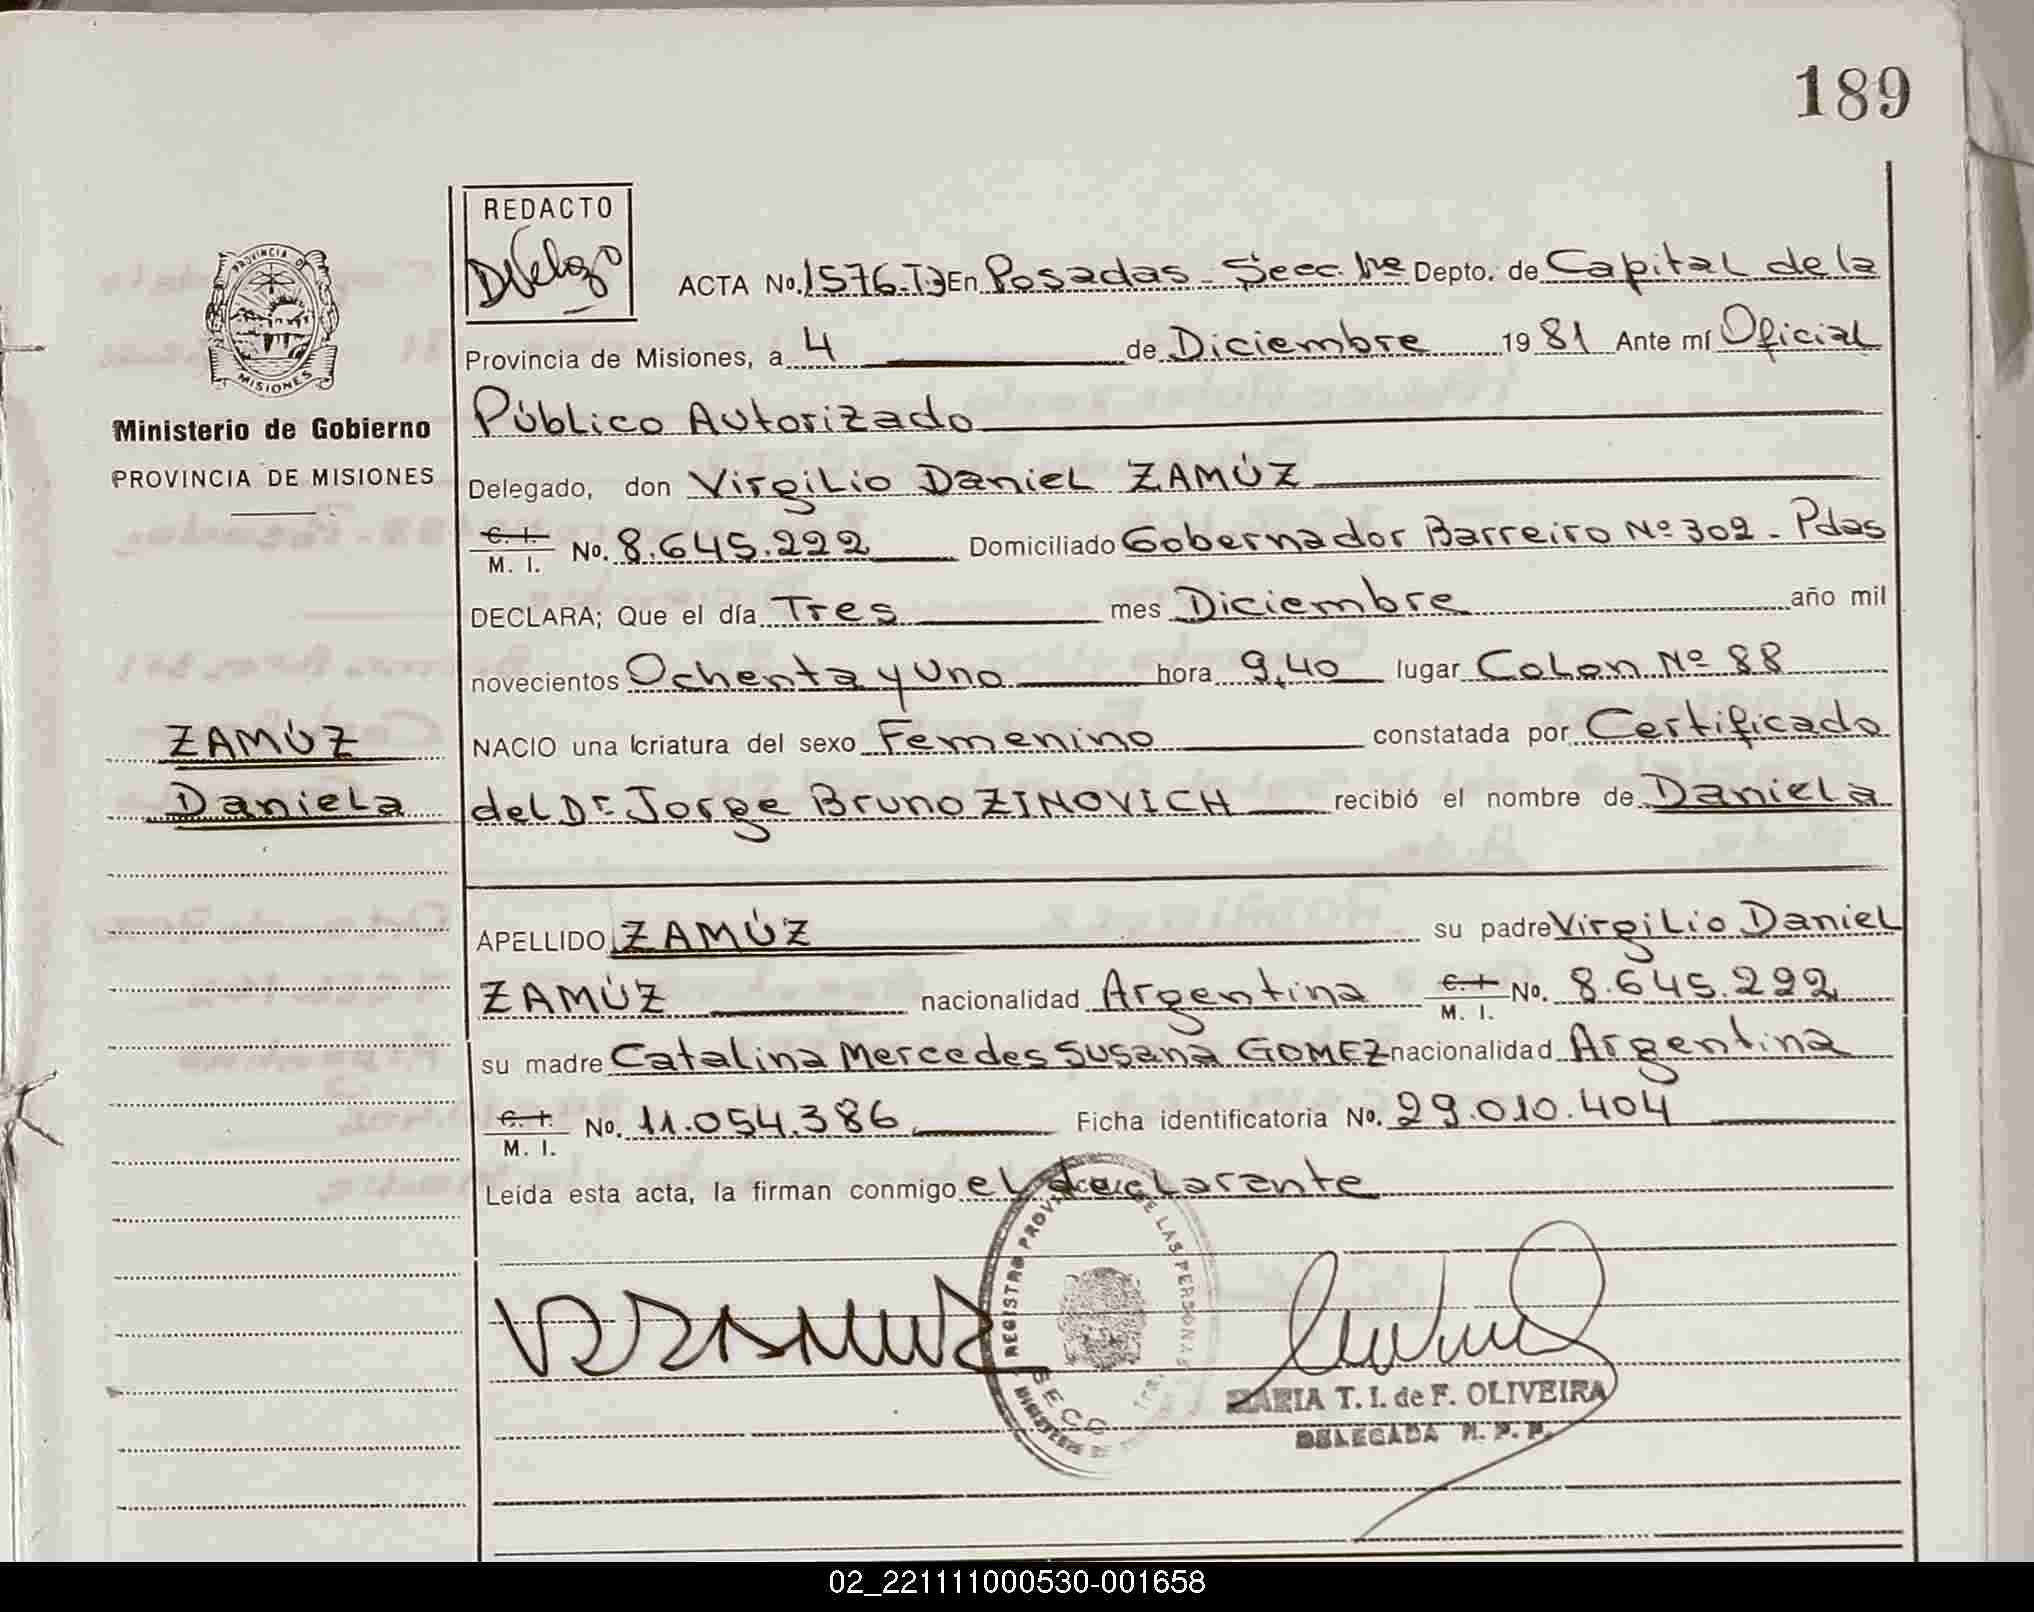 189
REDACTO
PROVINCIA DE
MISIONES
Ministerio de Gobierno
PROVINCIA DE MISIONES
ZAMÚZ
Daniela
ACTA No. 1576.T3 En Posadas - Secc. 1ª Depto. de Capital de la
Provincia de Misiones, a 4 de Diciembre 1981 Ante mí Oficial
Público Autorizado
Delegado, don Virgilio Daniel ZAMÚZ
C. I. / M. I. No. 8.645.222 Domiciliado Gobernador Barreiro Nº 302 - Pdas
DECLARA; Que el día Tres mes Diciembre año mil
novecientos Ochenta y Uno hora 9,40 lugar Colon Nº 88
NACIO una criatura del sexo Femenino constatada por Certificado
del Dr. Jorge Bruno ZINOVICH recibió el nombre de Daniela
APELLIDO ZAMÚZ su padre Virgilio Daniel
ZAMÚZ nacionalidad Argentina C. I. / M. I. No. 8.645.222
su madre Catalina Mercedes Susana GOMEZ nacionalidad Argentina
C. I. / M. I. No. 11.054.386 Ficha identificatoria No. 29.010.404
Leída esta acta, la firman conmigo el declarante
REGISTRO PROV DE LAS PERSONAS
SECC
MARIA T. I. de F. OLIVEIRA
DELEGADA R. P. P.
02_221111000530-001658